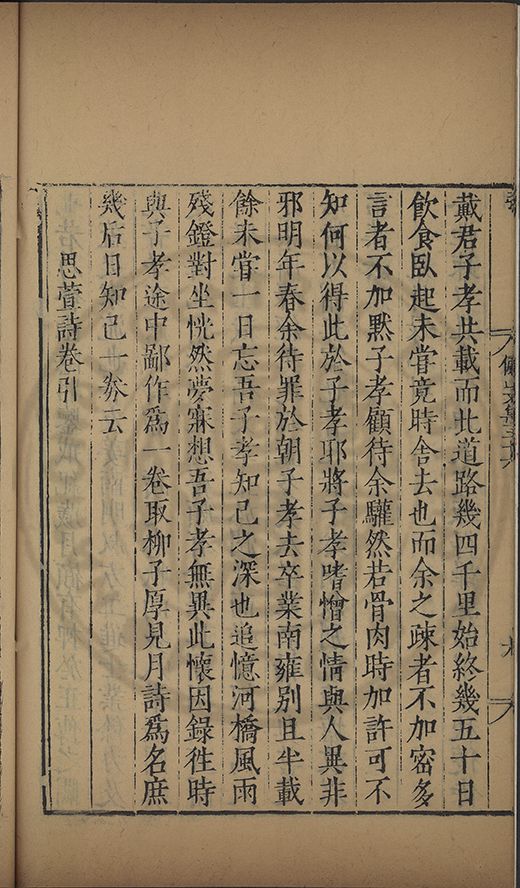 戴君子孝共載而北道路幾四千里始終幾五十日
飲食臥起未嘗竟時舍去也而余之疎者不加密多
言者不加默子孝顧待余驩然若骨肉時加許可不
知何以得此於子孝耶將子孝嗜憎之情與人異非
邪明年春余待罪於朝子孝去卒業南雍別且半載
餘未嘗一日忘吾子孝知己之深也追憶河橋風雨
殘鐙對坐恍然夢寐想吾子孝無異此懷因錄徃時
與子孝途中鄙作為一卷取柳子厚見月詩為名庶
幾后日知己一券云
思萱詩卷引